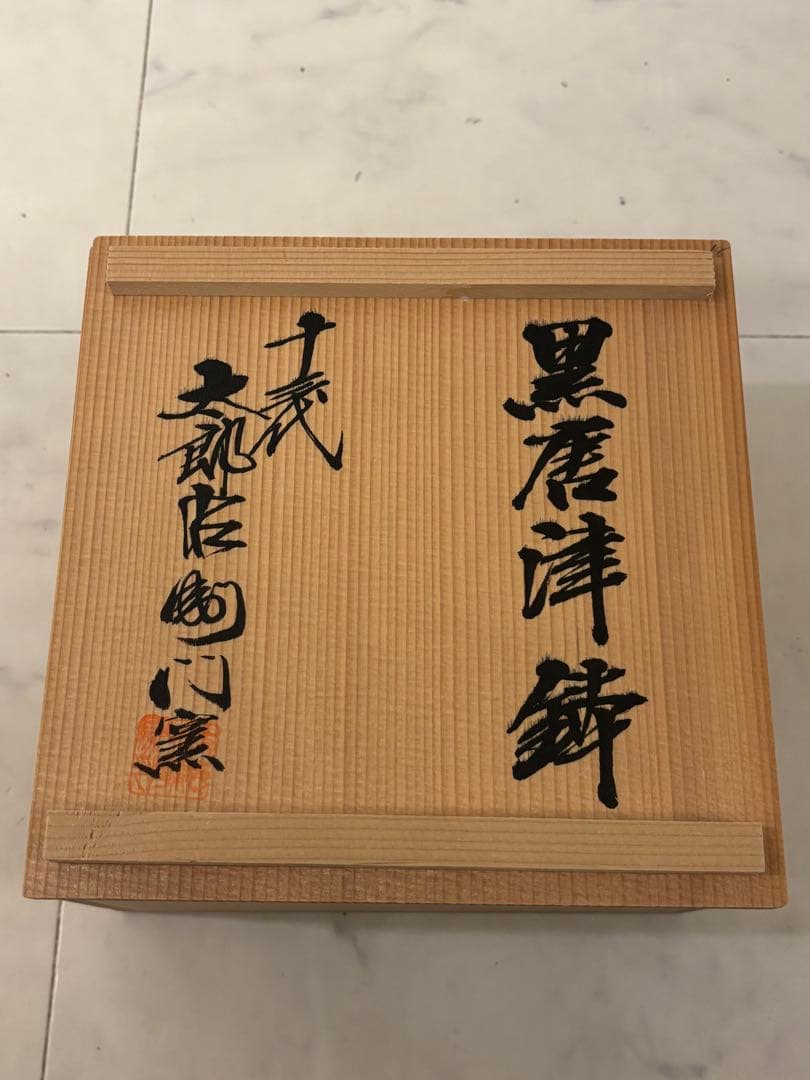 黒唐津鉢
十代
太郎右衛門窯